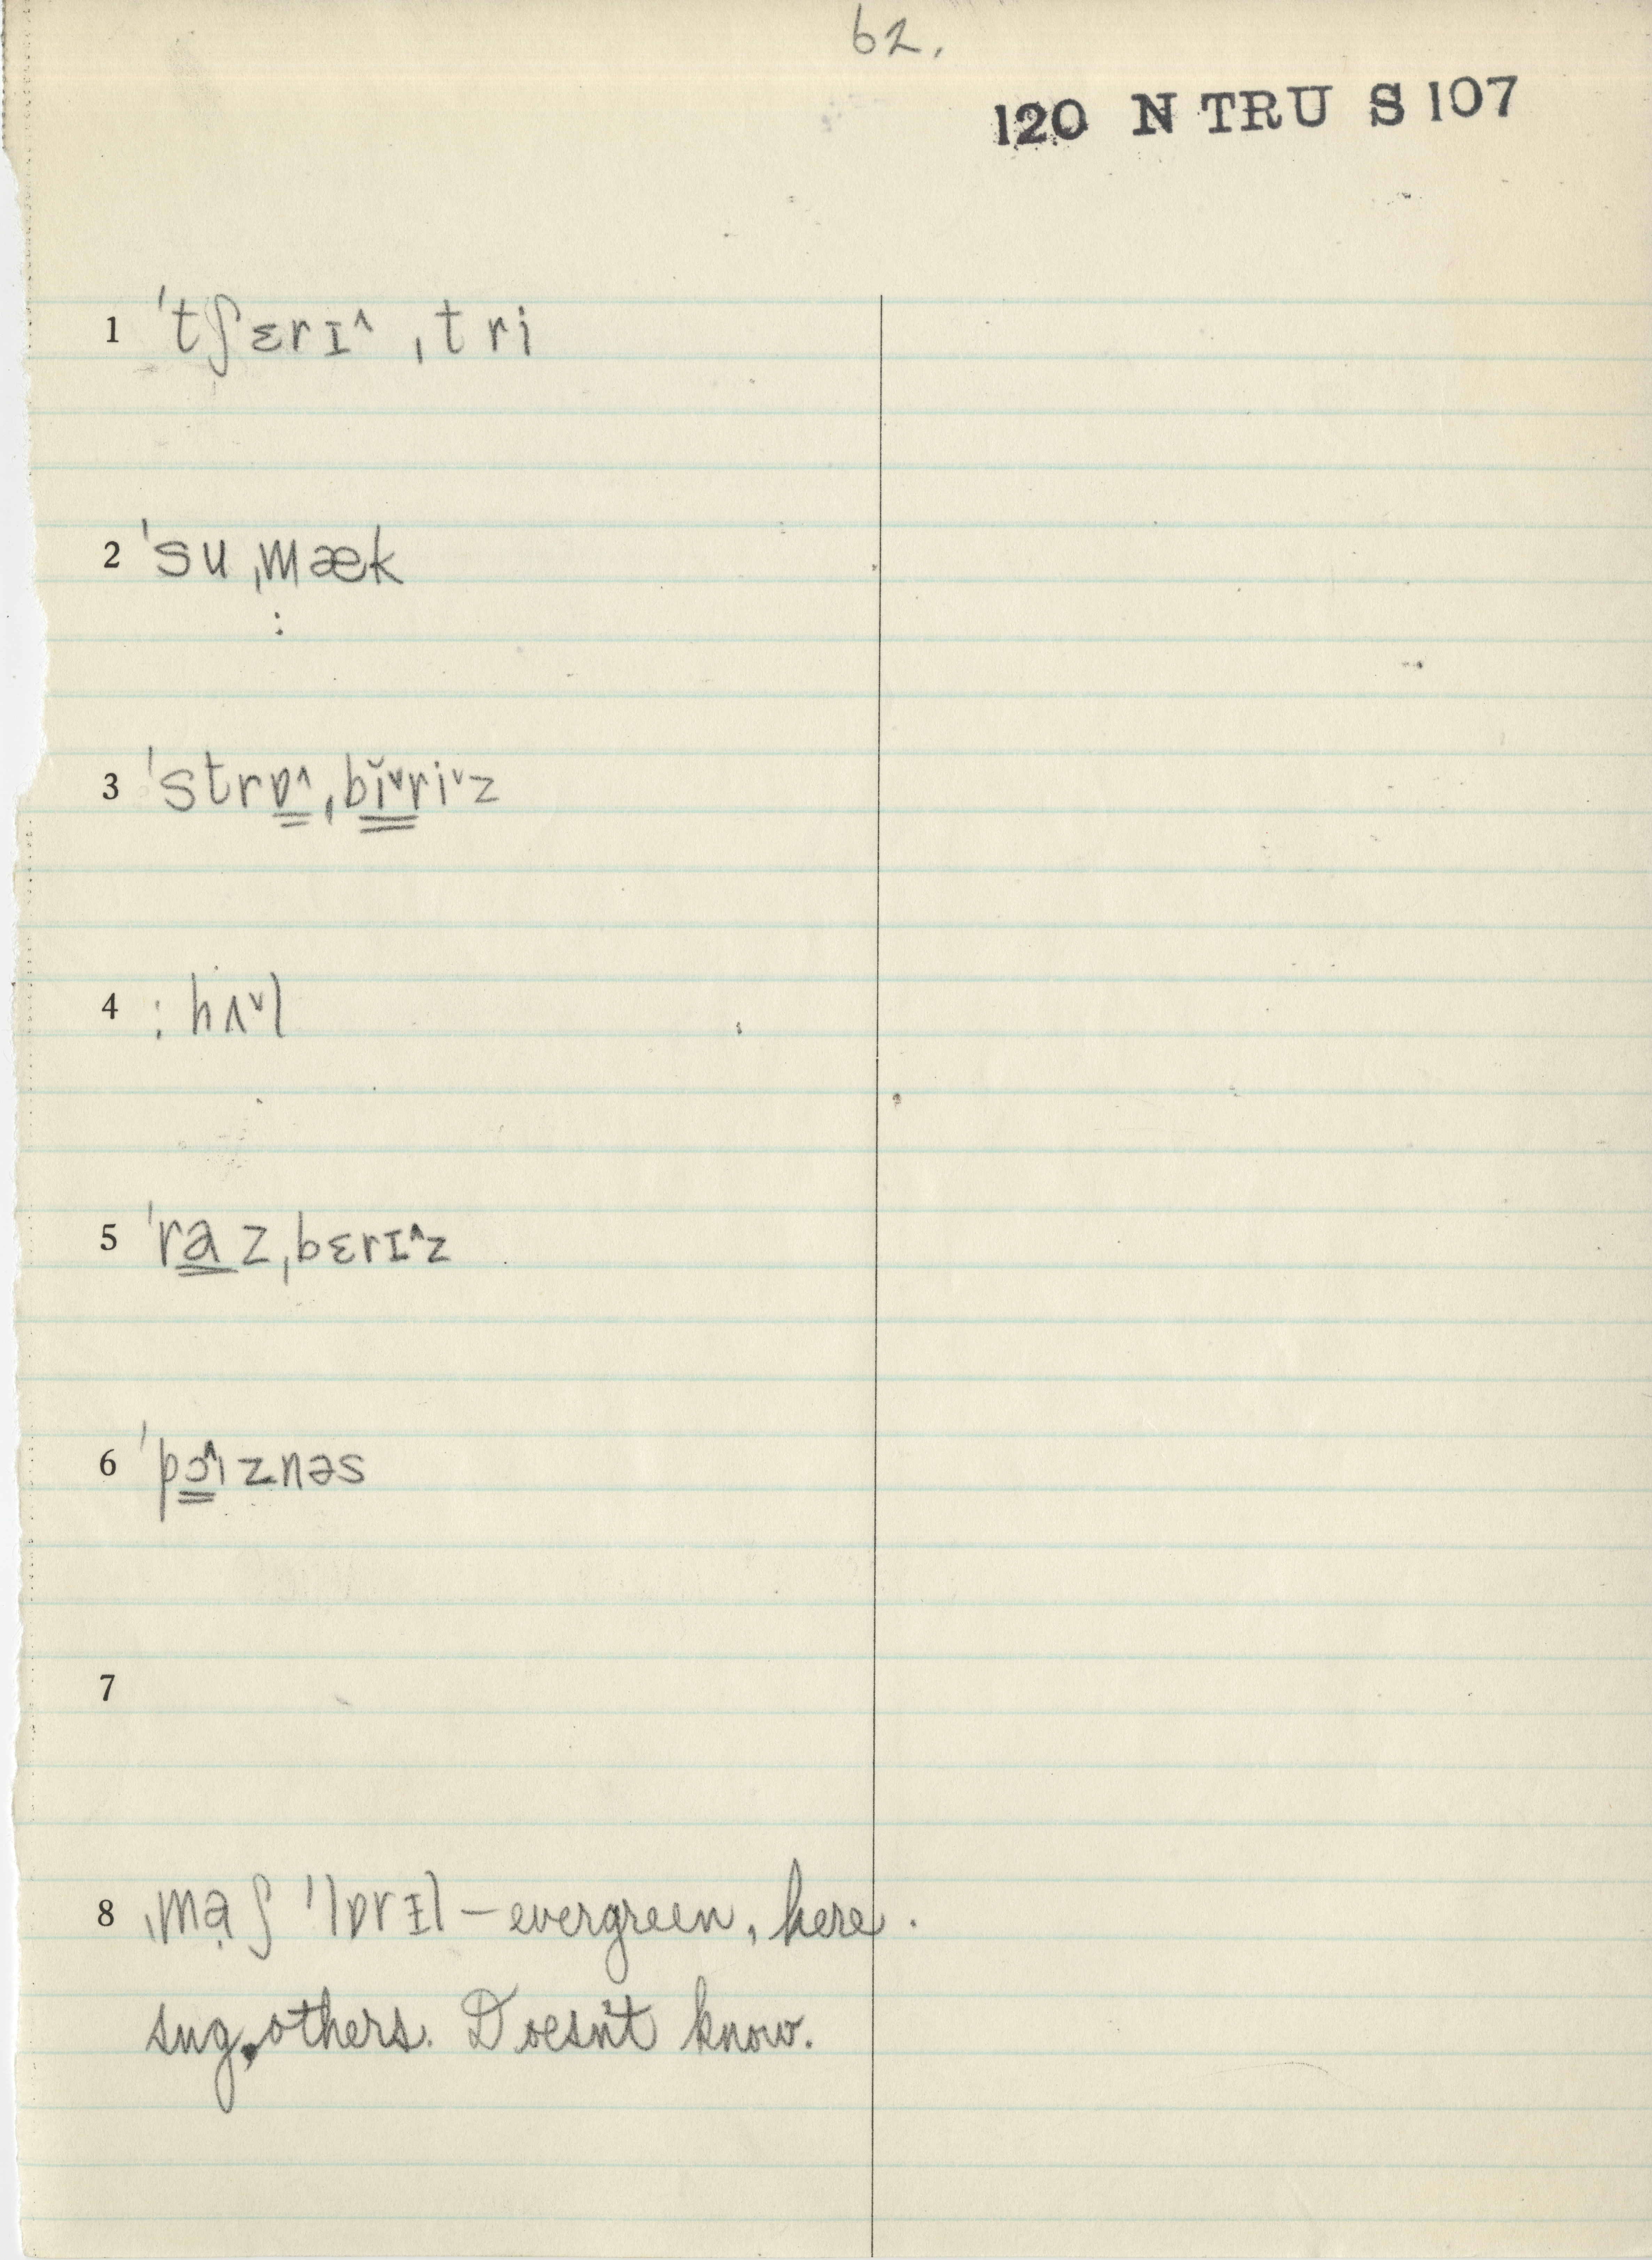 62.
120 N TRU S 107
1 ˈtʃɛrɪ^ ˌtri
2 ˈsuˌmæk
:
3 ˈstrɒ^ˌbĭˇriˇz
4 : hʌˇl
5 ˈraz ˌbɛrɪ^z
6 ˈpɔ^ɪznəs
7
8 ˌmạʃ ˈlɒrɪ̵l – evergreen, here.
sug. others. Doesn't know.